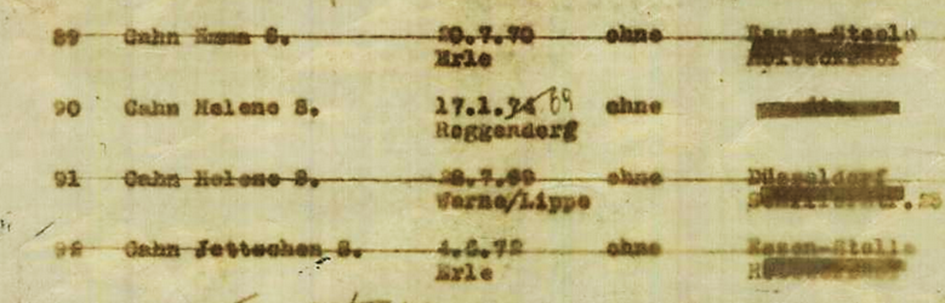 89 Cahn Emma S. 20.7.70 ohne Essen-Steele
Erle
90 Cahn Helene S. 17.1.74 69 ohne
Roggendorf
91 Cahn Helene S. 28.7.69 ohne Düsseldorf
Werne/Lippe
92 Cahn Jettochen S. 4.6.72 ohne Essen-Stelle
Erle